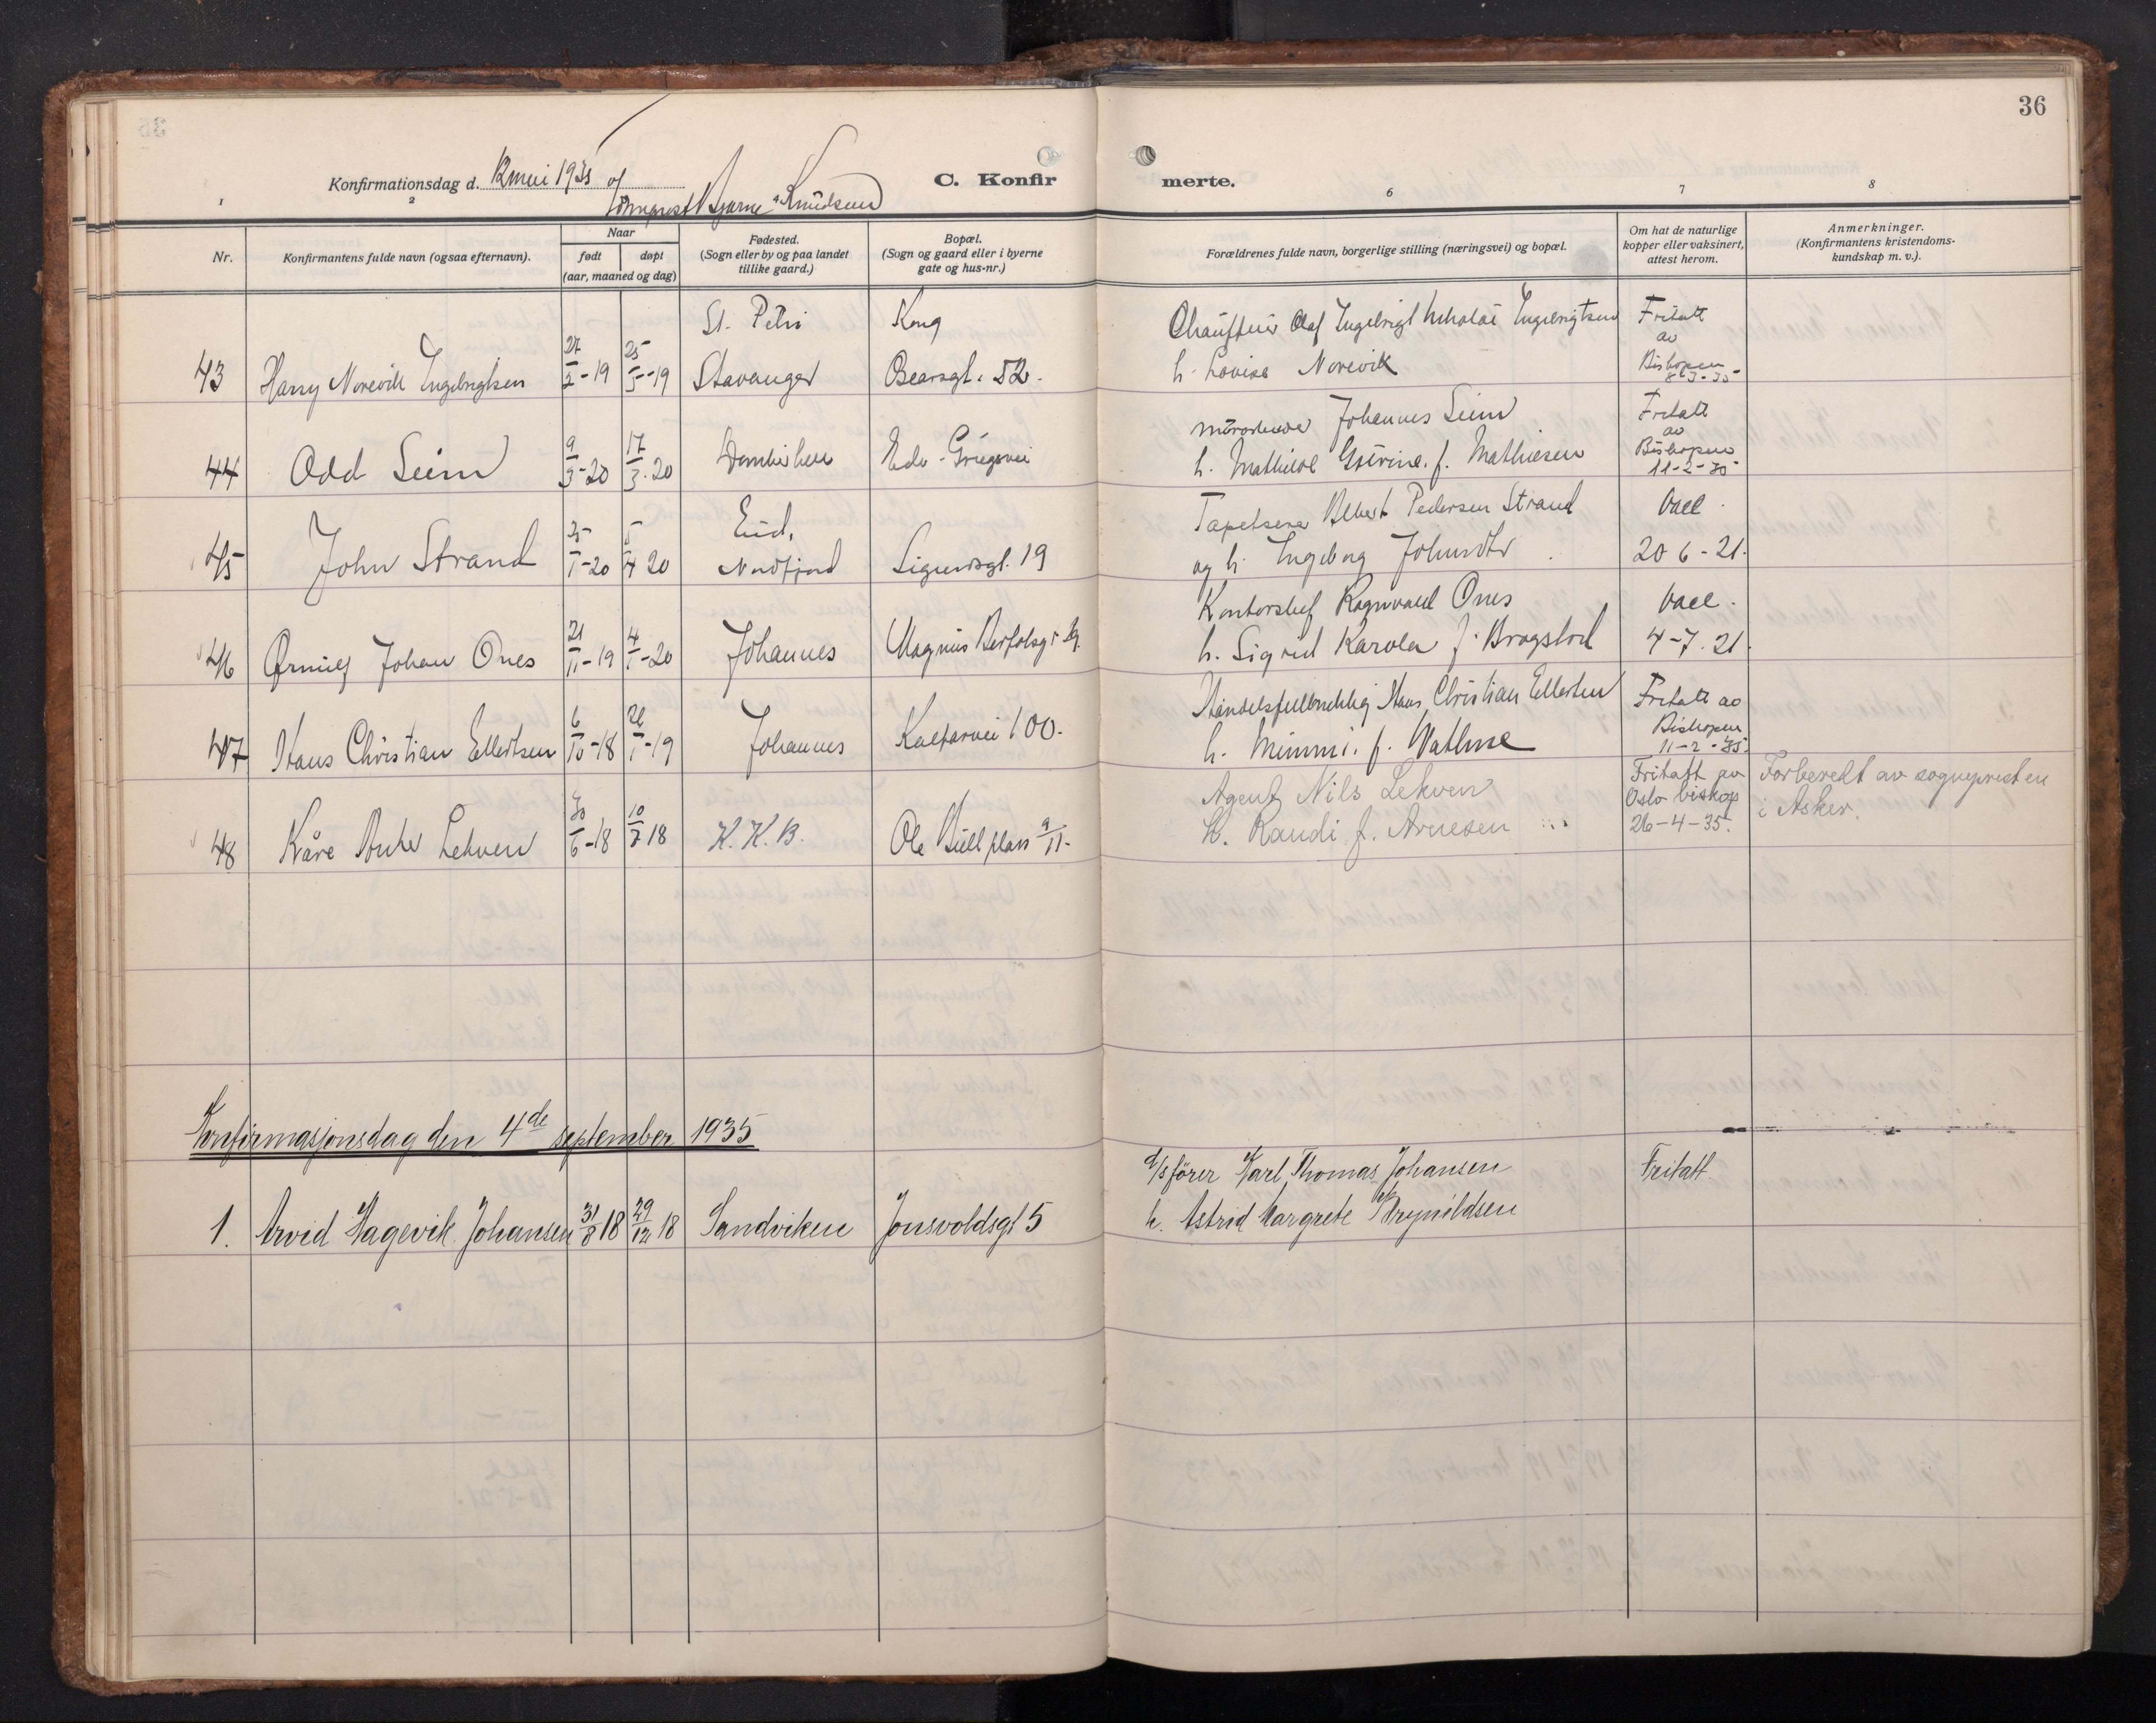 36
Konfirmationsdag d. 12 mai 1935 af
Bjarne Knudsen
C. Konfirmerte.
1 2 6 7 8
Nr.
Konfirmantens fulde navn (ogsaa efternavn).
Naar
født døpt
(aar, maaned og dag)
Fødested.
(Sogn eller by og paa landet
tillike gaard.)
Bopæl.
(Sogn og gaard eller i byerne
gate og hus-nr.)
Forældrenes fulde navn, borgerlige stilling (næringsvei) og bopæl.
Om hat de naturlige
kopper eller vaksinert,
attest herom.
Anmerkninger.
(Konfirmantens kristendoms-
kundskap m. v.).
St. Petri Kong Chauffeur Olaf Ingebrigt Nikolai Ingebrigtsen Fritatt
av
43 Harry Norevik Ingebrigtsen 27/2-19 25/5-19 Stavanger Oscarsgt. 52. h. Lovise Norevik Bishopen
8-3-35
Johannes Seim Fritatt
av
44 Odd Seim 9/3-20 17/3.20 Edv. Griegsvei h. Mathilde f. Mathiesen Bishopen
11-2-35
Eid, Tapetserer Albert Pedersen Strand Vacc.
45 John Strand 25/1-20 5/4 20 Nordfjord Sigurdsgt. 19 og h. Ingeborg Johnsdtr 20 6-21.
Kontorchef Ragnvald Ones Vacc.
46 Johan Ones 21/11-19 4/1-20 Johannes Magnus Barfotsgt 29. h. Sigrid Karola f. Brogstad 4-7.21.
Handelsfullmektig Hans Christian Ellertsen Fritatt av
Bishopen
47 Hans Christian Ellertsen 6/10-18 26/1-19 Johannes Kalfarvei 100. h. Mimmi. f. Wathne 11-2-35.
Agent Nils Lekven Fritatt av Forberedt av sognepresten
Oslo biskop i Asker.
48 Kåre Lekven 30/6-18 10/7 18 K. K. B. Ole Bull plass 9/11- h. Randi f. Arnesen 26-4-35.
Konfirmasjonsdag den 4de september 1935
d/s fører Karl Thomas Johansen Fritatt.
1. Arvid Hagevik Johansen 31/8 18 29/12 18 Sandviken Jonsvoldsgt 5 h. Astrid Margrete Brynildsen